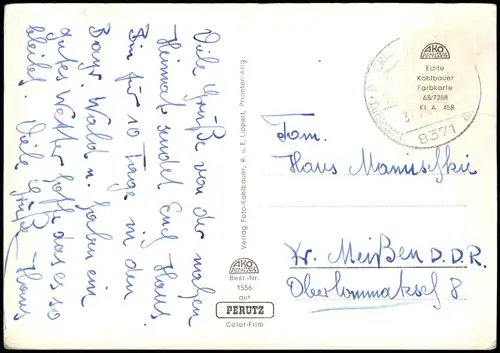 Viele Grüße von der nahen
Heimat sendet Euch Hans
Bin für 10 Tage in den
Bayr. Wald u. haben ein
gutes Wetter hoffe das es so
bleibt. Viele Grüße Hans
Verlag Foto-Kohlbauer, R. u. E. Lippert, Pfronten-Allg.
AKO
Best.-Nr.
1556
auf
PERUTZ
Color-Film
AKO
Echte
Kohlbauer
Farbkarte
63/7288
Kl. A. 458
8371
Fam.
Hans
Kr. Meißen D.D.R.
Oberlommatzsch 8